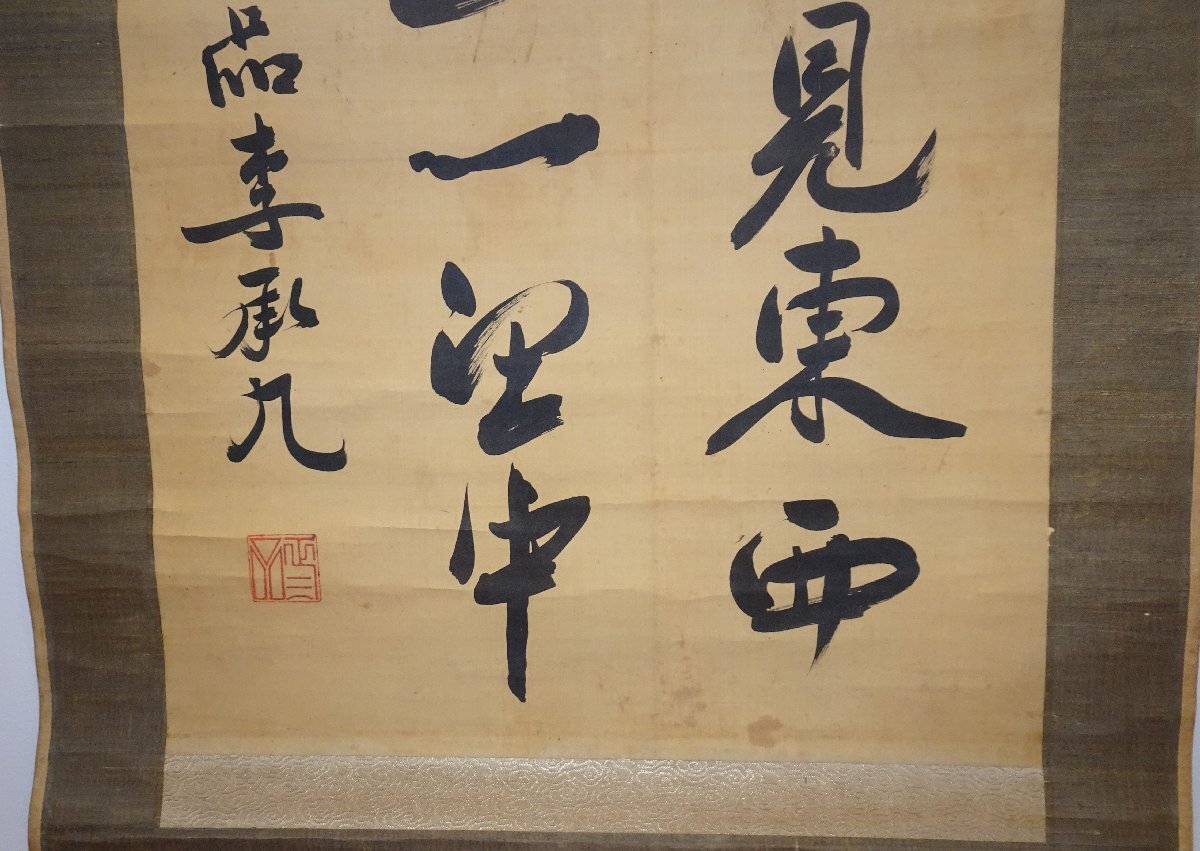 見東西
一望中
品李承九